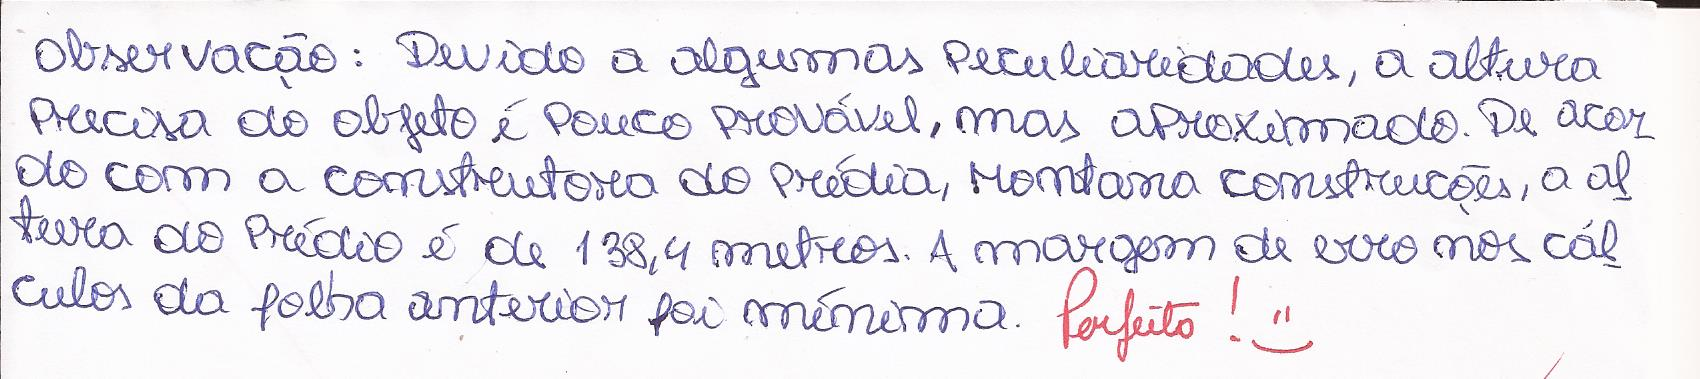 Observação: Devido a algumas peculiaridades, a altura
precisa do objeto é pouco provável, mas aproximado. De acor
do com a construtora do prédia, Montana construções, a al
tura do prédio é de 138,4 metros. A margem de erro nos cál
culos da folha anterior foi mínima. Perfeito! :)